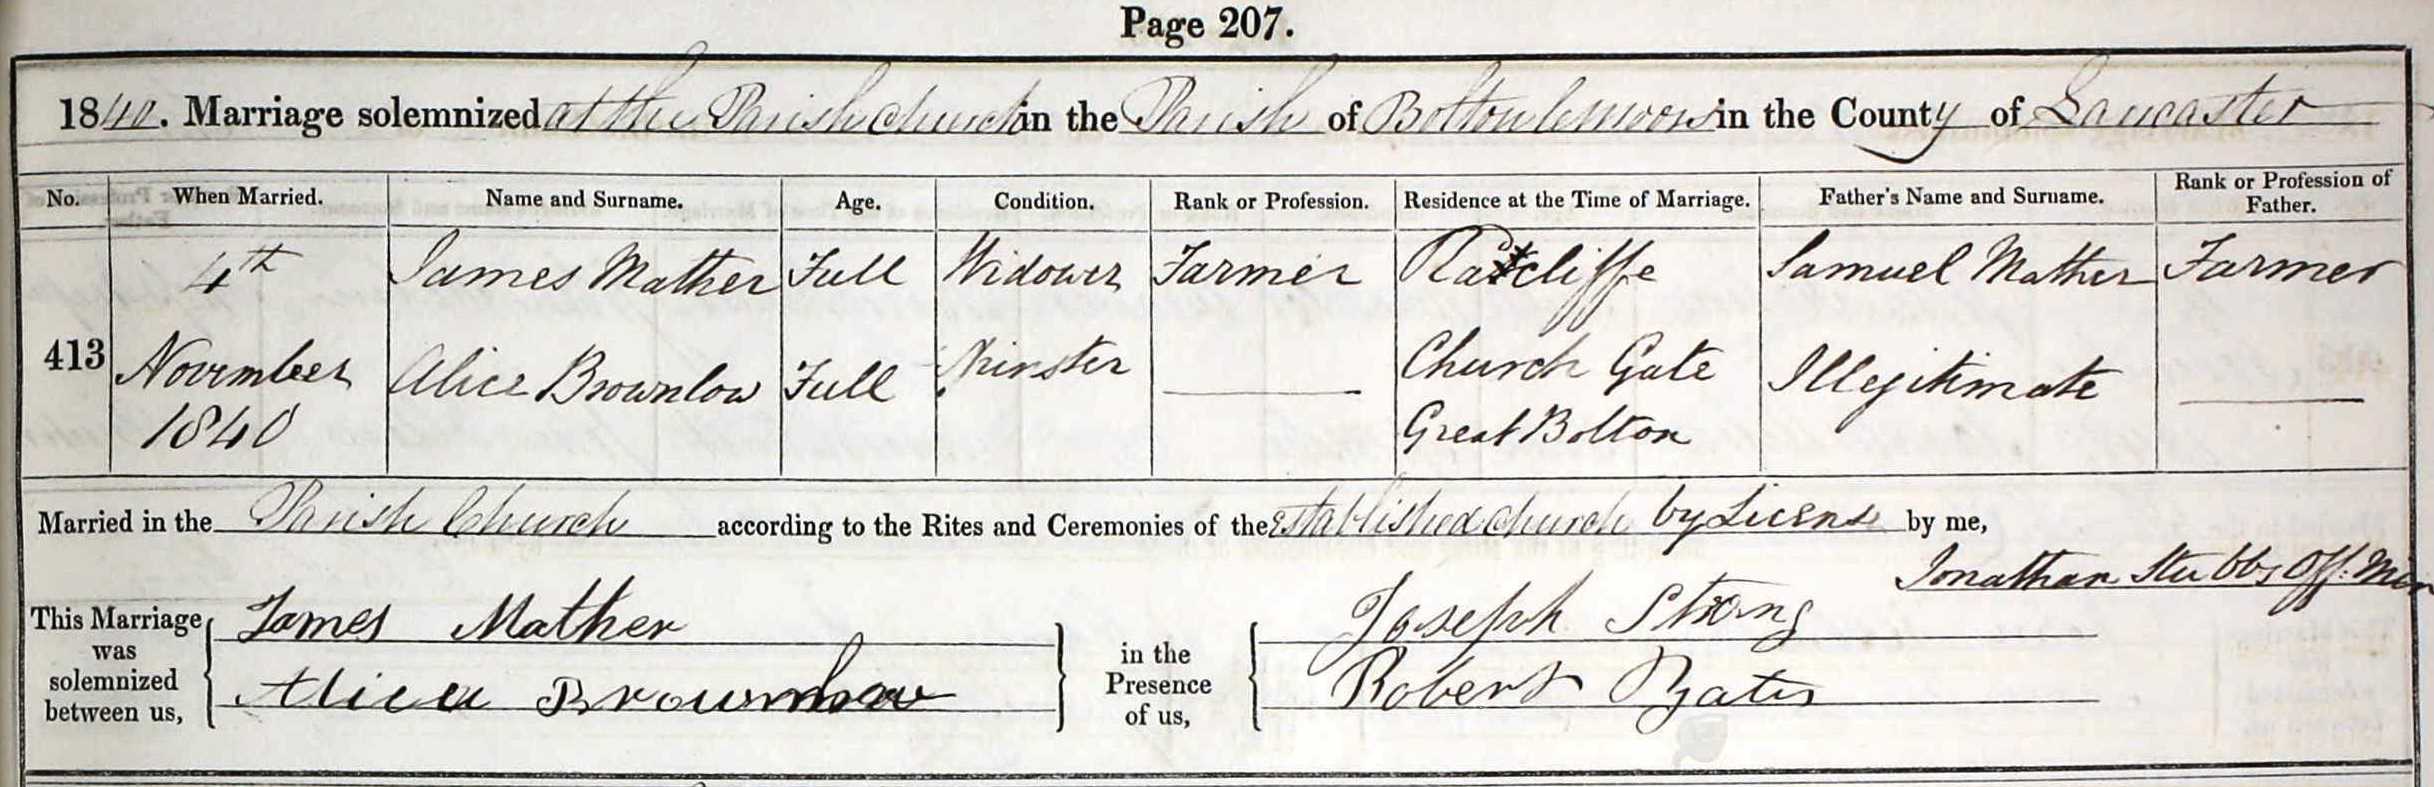 Page 207.
1840. Marriage solemnized at the Parish Church in the Parish of Bolton le moors in the County of Lancaster
No. When Married. Name and Surname. Age. Condition. Rank or Profession. Residence at the Time of Marriage. Father's Name and Surname. Rank or Profession of Father.
4th James Mather Full Widower Farmer Ratcliffe Samuel Mather Farmer
413 November Alice Brownlow Full Spinster Church Gate Illegitimate
1840 Great Bolton
Married in the Parish Church according to the Rites and Ceremonies of the Established Church by Licens by me,
Jonathan Stubbs Off. Min
This Marriage was solemnized between us, James Mather
Alice Brownlow
in the Presence of us, Joseph Strong
Robert Yates